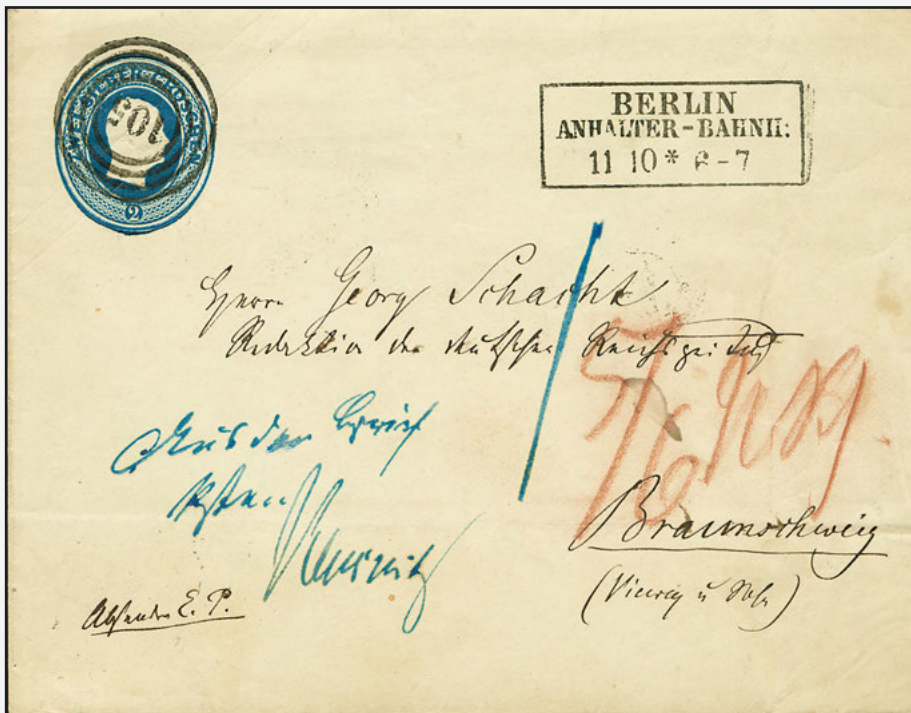 ZWEI SILBERGROSCHEN
105
2
BERLIN
ANHALTER-BAHNH:
11 10 * 6-7
Herrn Georg Schacht
Redaktion der deutschen Reichszeitung
Aus dem Brief
kasten
Braunschweig
(Vieweg u Sohn)
Absender E. P.